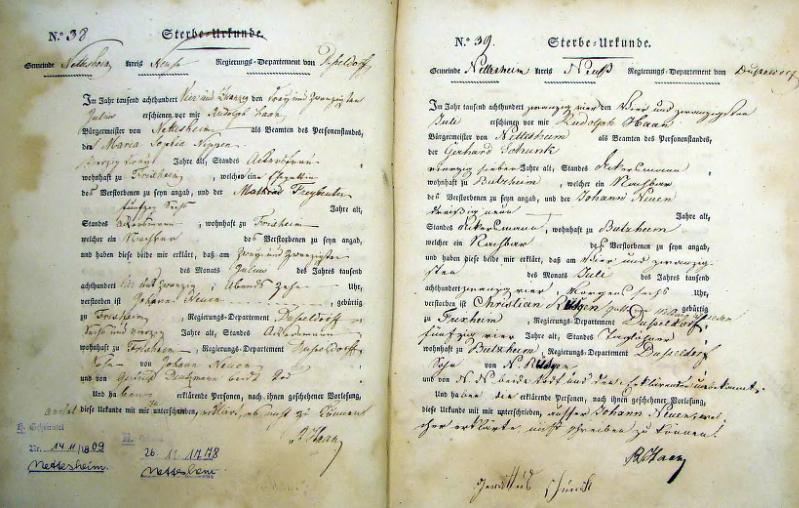 N.º 38 Sterbe-Urkunde.
Gemeinde Nettesheim Kreis Neuss Regierungs-Departement von Düsseldorf
Im Jahr tausend achthundert Vier und Zwanzig den Drey und Zwanzigsten
Julius erschienen vor mir Rudolph Haan
Bürgermeister von Nettesheim als Beamten des Personenstandes,
der Maria Sophia
vierzig drey Jahre alt, Standes Ackerinn
wohnhaft zu Frixheim, welches eine Ehegattin
des Verstorbenen zu seyn angab, und der Mathias
fünfzig Sechs Jahre alt,
Standes Ackersmann, wohnhaft zu Frixheim
welcher ein Nachbar des Verstorbenen zu seyn angab,
und haben diese beide mir erklärt, daß am Zwey und Zwanzigsten
des Monats Julius des Jahres tausend
achthundert Vier und Zwanzig, Abends Zehn Uhr,
verstorben ist Johann Neuen gebürtig
zu Frixheim, Regierungs-Departement Düsseldorf
Sechs und vierzig Jahre alt, Standes Ackersmann
wohnhaft zu Frixheim, Regierungs-Departement Düsseldorf
Sohn von Johann Neuen
und von beide tod
Und haben erklärende Personen, nach ihnen geschehener Vorlesung,
diese Urkunde mit mir unterschrieben, erklärt, nicht zu können
R Haan
Nr. 14 11/18 09
Nettesheim.
26. 11 1778
Nettesheim
N.º 39. Sterbe-Urkunde.
Gemeinde Nettesheim Kreis Neuß Regierungs-Departement von Dusseldorf
Im Jahr tausend achthundert zwanzig vier den Vier und zwanzigsten
Juli erschienen vor mir Rudolph Haan
Bürgermeister von Nettesheim als Beamten des Personenstandes,
der Gerhard Schunk
vierzig sieben Jahre alt, Standes Ackersmann
wohnhaft zu Butzheim, welcher ein Nachbar
des Verstorbenen zu seyn angab, und der Johann Neuen
dreißig neun Jahre alt,
Standes Ackersmann, wohnhaft zu Butzheim
welcher ein Nachbar des Verstorbenen zu seyn angab,
und haben diese beide mir erklärt, daß am Vier und zwanzig-
sten des Monats Juli des Jahres tausend
achthundert zwanzig vier, Morgens sechs Uhr,
verstorben ist Christian Rütgen gebürtig
zu Frixheim, Regierungs-Departement Dusseldorf
fünfzig vier Jahre alt, Standes Taglöhner
wohnhaft zu Butzheim, Regierungs-Departement Dusseldorf
Sohn von N. Rütgen
und von N. N. beide todt und den Erklärenden unbekannt.
Und haben die erklärende Personen, nach ihnen geschehener Vorlesung,
diese Urkunde mit mir unterschrieben, ausser Johann Neuen, wel-
cher erklärte, nicht schreiben zu können!
R Haan